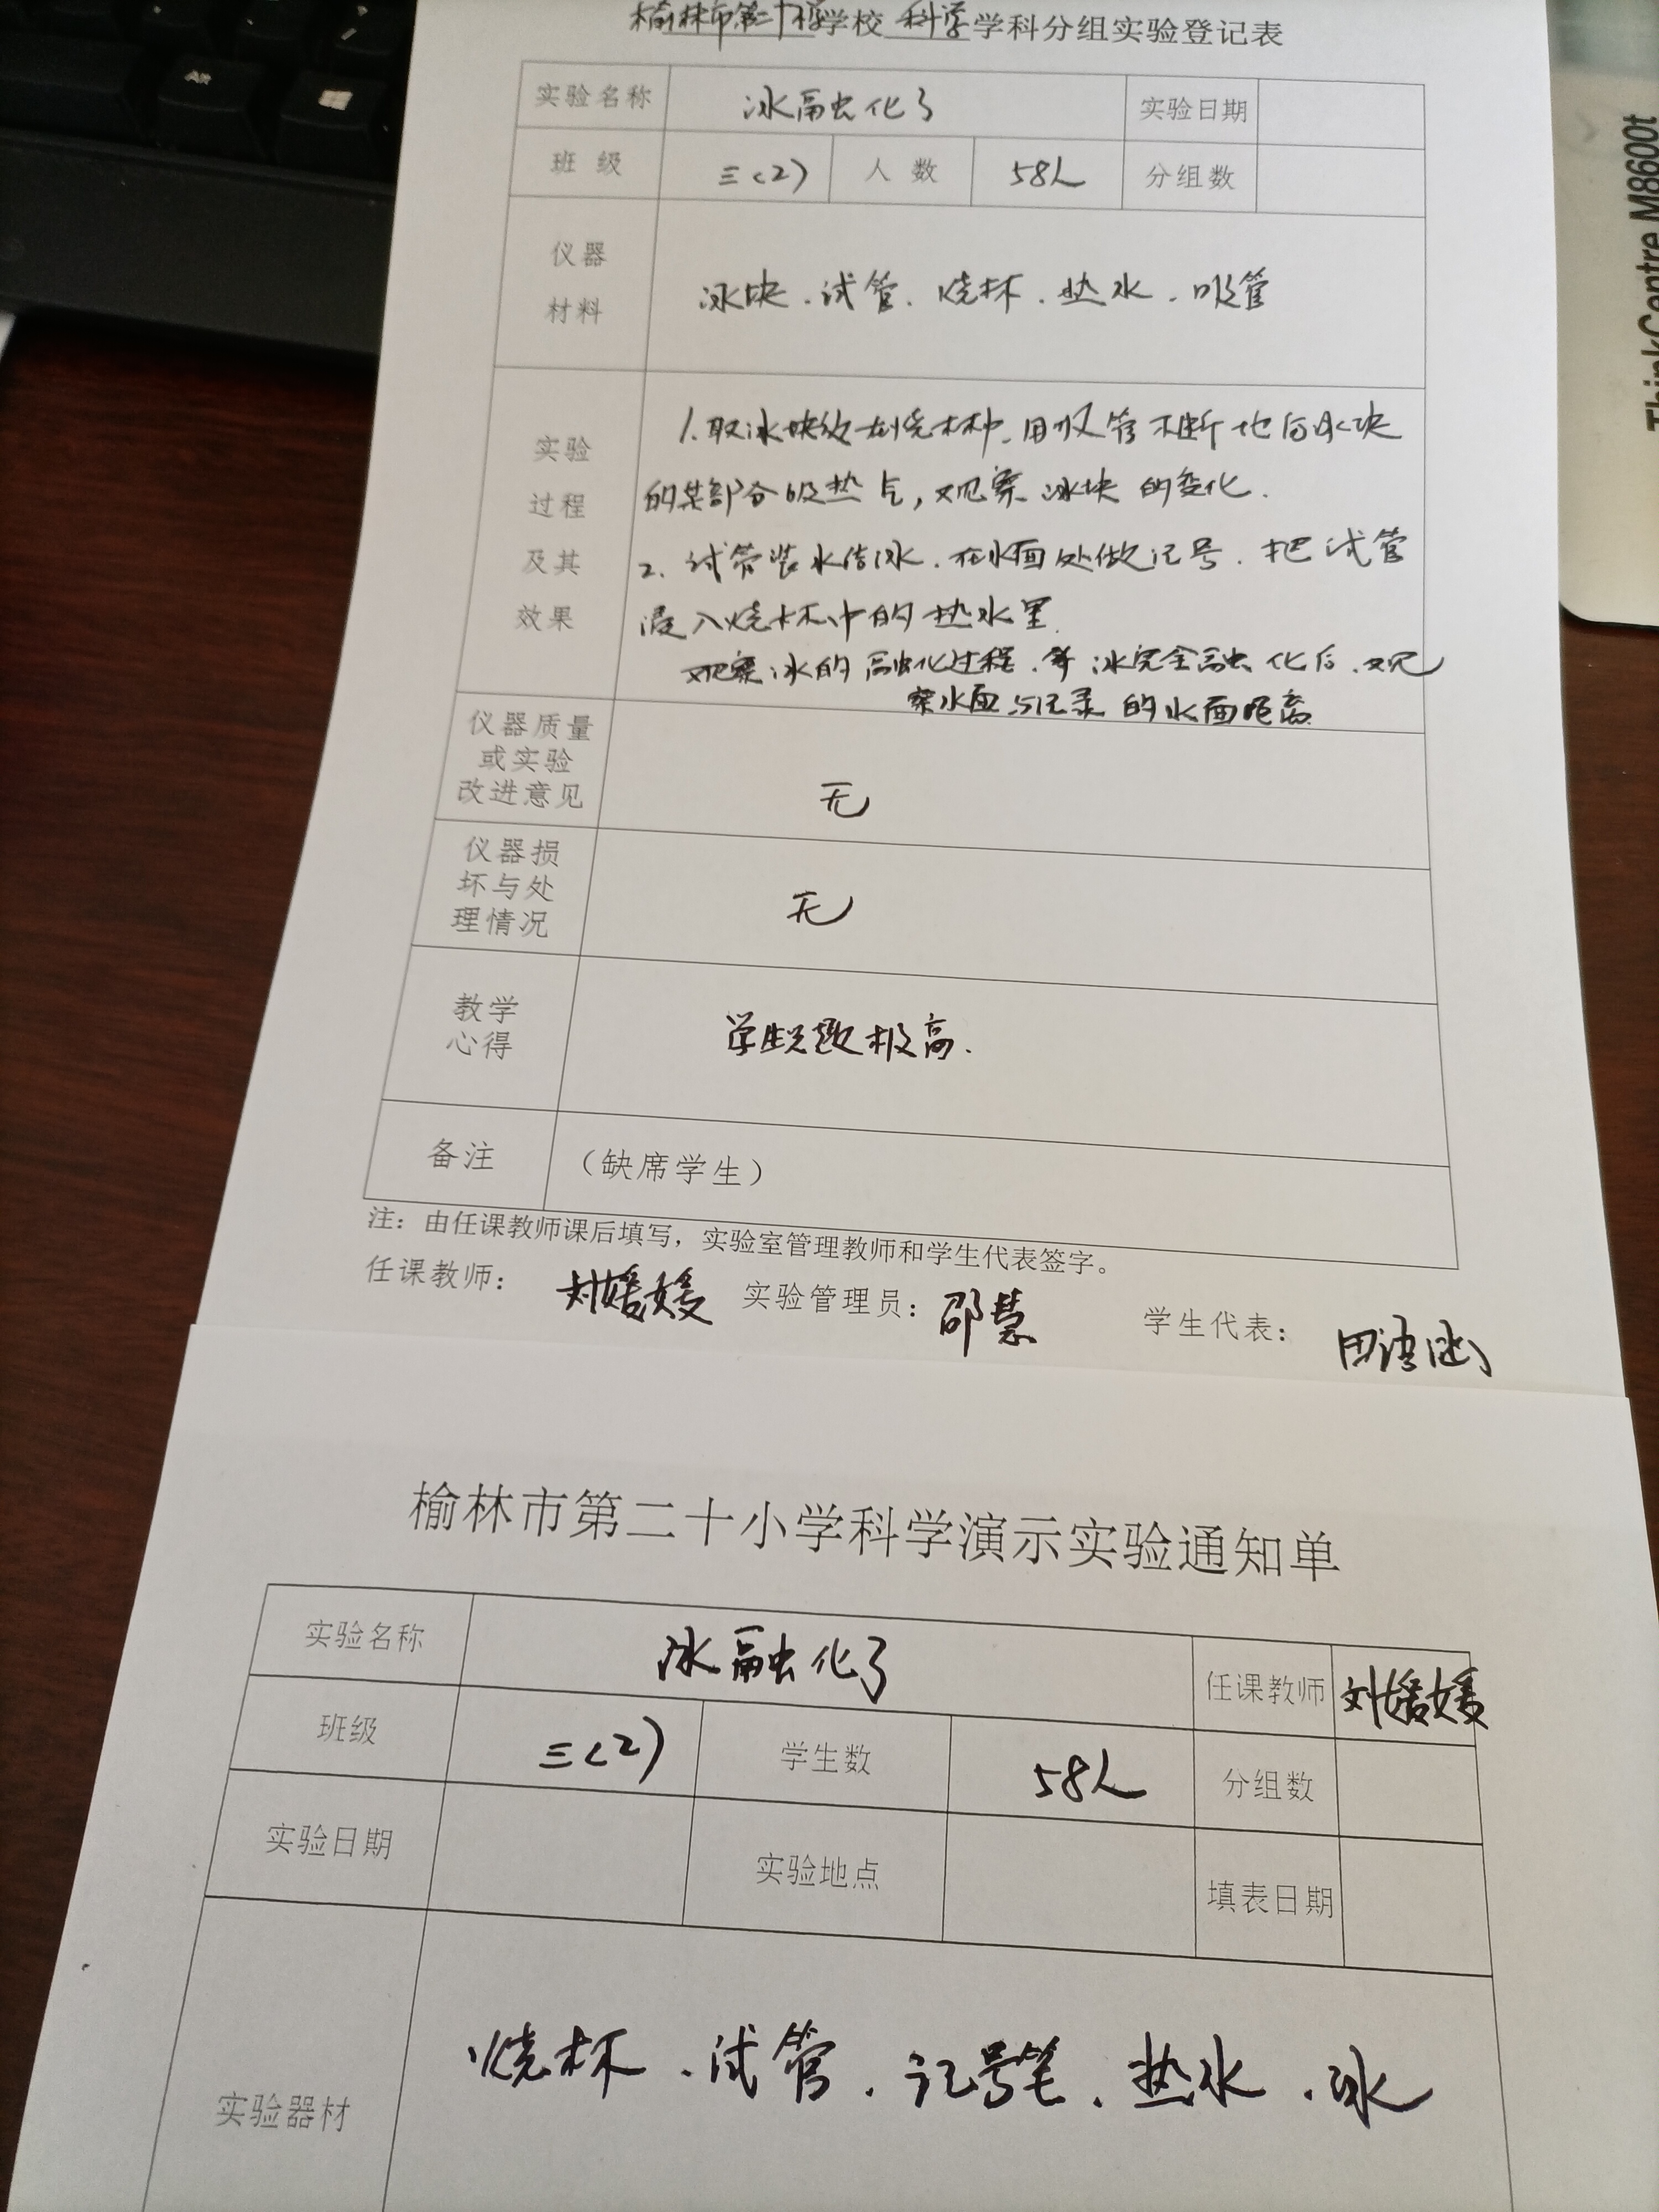 榆林市第二十小学校 科学 学科分组实验登记表
实验名称 冰融化了 实验日期
班 级 三(2) 人 数 58人 分组数
仪器
材料
冰块、试管、烧杯、热水、吸管
实验
过程
及其
效果
1.取冰块放到烧杯中、用吸管不断地向冰块
的某部分吸热气，观察冰块的变化.
2、试管装水结冰、在水面处做记号、把试管
浸入烧杯中的热水里.
观察冰的融化过程、等冰完全融化后、观
察水面与记录的水面距离
仪器质量
或实验
改进意见
无
仪器损
坏与处
理情况
无
教学
心得
学生兴趣极高.
备注 （缺席学生）
注：由任课教师课后填写，实验室管理教师和学生代表签字。
任课教师： 刘媛媛 实验管理员：邵慧 学生代表： 田语涵
榆林市第二十小学科学演示实验通知单
实验名称 冰融化了 任课教师 刘媛媛
班级 三(2) 学生数 58人 分组数
实验日期 实验地点 填表日期
实验器材 烧杯、试管、记号笔、热水、冰
ThinkCentre M8600t